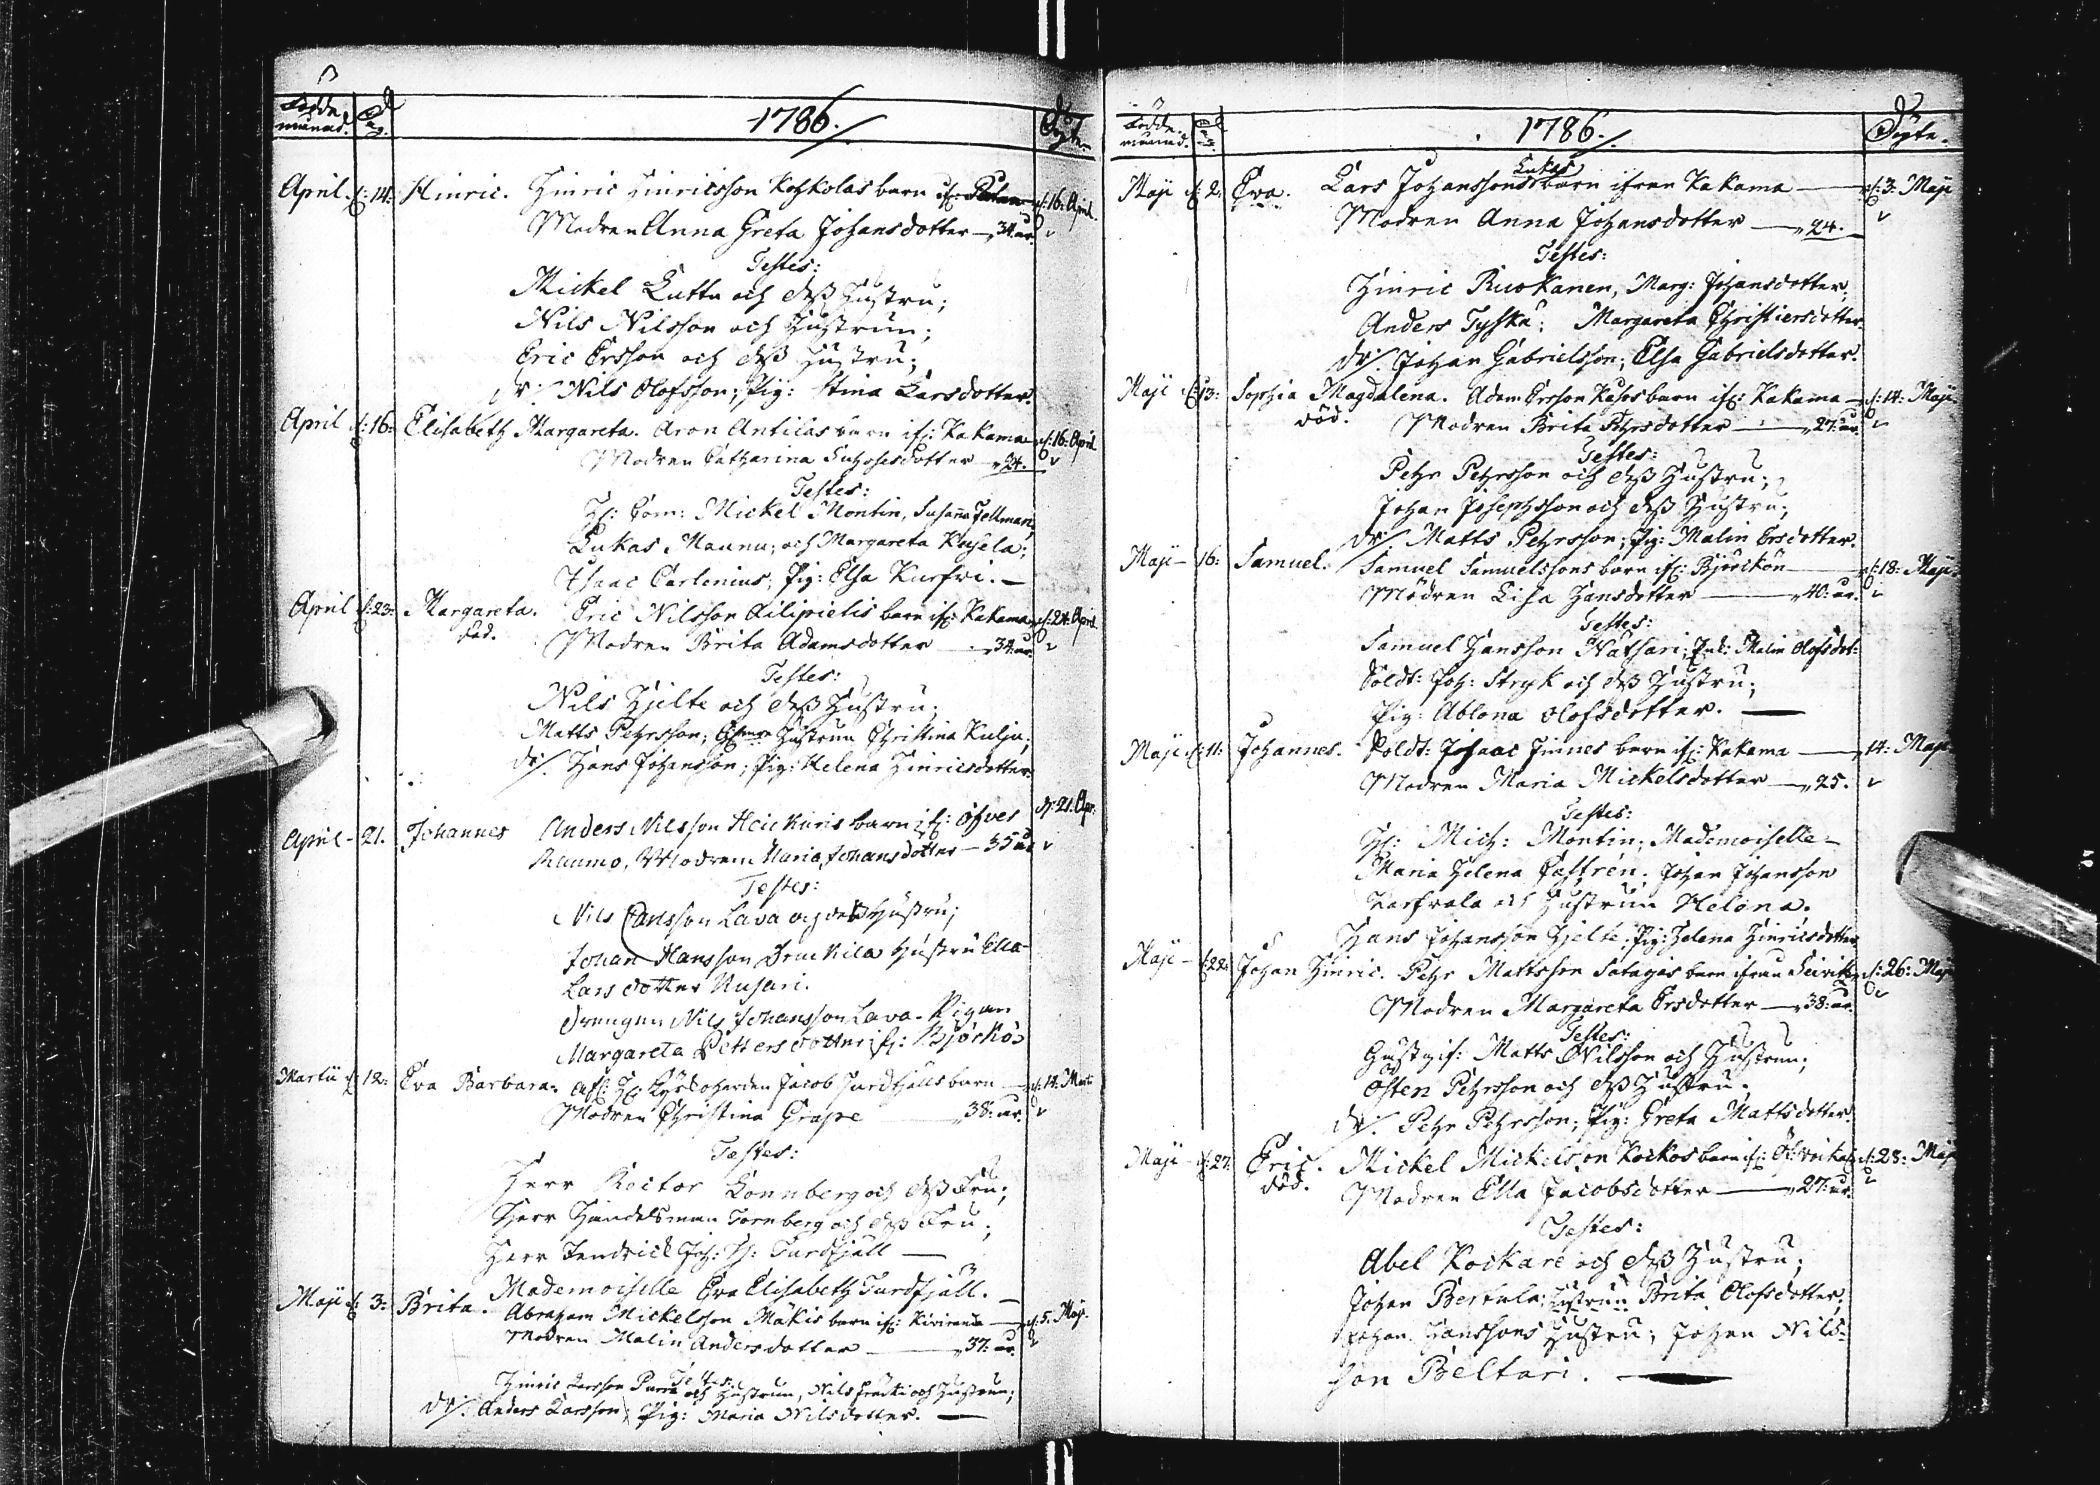 Födde månad. Dag. 1786. Döpte.
April. d: 14: Hinric. Hinric Hinricsson Koskolas barn ifr: d: 16: April.
Modren Anna Greta Johansdotter — 34. år.
Testes:
Mickel Lutta och dess Hustru;
Nils Nilsson och Hustrun;
Eric Ersson och dess Hustru;
dr: Nils Olofsson; Pig: Stina Larsdotter.
April d: 16: Elisabeth Margareta. Aron Antilas barn ifr: Kakama d: 16: April
Modren Catharina — 24.
Testes:
Hr: Com: Mickel Montin, Susanna Fellman,
Lukas Maunu; och Margareta Kusela;
Isaac Carlenius; Pig: Elsa Kurfvi. —
April d: 23: Margareta. Eric Nilsson Filipietis barn ifr: Kakama d: 24: April
död. Modren Brita Adamsdotter — 34: år.
Testes:
Nils Hjelte och dess Hustru;
Matts Pehrsson; Hustrun Christina Kulju;
dr/. Hans Johansson; Pig: Helena Hinricsdotter
April - 21. Johannes Anders Nilsson Heickuris barn ifr: Öfver d: 21. Apr:
Raumo, Modren Maria Johansdotter — 35 år
Testes:
Nils Carlsson Lava och dess Hustru;
Johan Hansson Hustru Ella
Larsdotter Nusari.
Drengen Nils Johansson Lava - Pigan
Margareta Pettersdotter ifr: Björkö
Martii d: 12: Eva Barbara. Afl: Hr: Kyrkoherden Jacob Turdfjälls barn — d: 14. Marti
Modren Christina Grape — 38: år.
Testes:
Herr Rector Lönnberg och dess Fru;
Herr Handelsman Tornberg och dess Fru;
Herr Joh: Turdfjäll —
Mademoiselle Eva Elisabeth Turdfjäll. —
Maji d: 3: Brita. Abraham Mickelsson Mäkis barn ifr: Kiviranda — d: 5. Maji.
Modren Malin Andersdotter — 37: år
Testes:
Hinric Larsson och Hustrun, Nils och Hustrun;
dr/. Anders Larsson; Pig: Maria Nilsdotter. —
Födde månad. Dag. 1786. Döpte.
Lukas
Maji d: 2: Eva. Lars Johanssons barn ifrån Kakama — d: 3: Maji
Modren Anna Johansdotter — 24.
Testes:
Hinric Ruokanen, Marg: Johansdotter;
Anders Tyskä; Margareta Christiersdotter
dr/. Johan Gabrielsson; Elsa Gabrielsdotter.
Maji d: 13: Sophia Magdalena. Adam Ersson barn ifr: Kakama — d: 14: Maji
död. Modren Brita Pehrsdotter — 27: år.
Testes:
Pehr Pehrsson och dess Hustru;
Johan Josephsson och dess Hustru;
dr/. Matts Pehrsson; Pig: Malin Ersdotter.
Maji - 16: Samuel. Samuel Samuelssons barn ifr: Björckön — d: 18: Maji
Modren Lisa Hansdotter — 40: år.
Testes:
Samuel Hansson Malin Olofsdot:
Soldt: Joh: Stryk och dess Hustru;
Pig: Ablona Olofsdotter. —
Maji d: 11: Johannes. Soldt: Isaac Finnes barn ifr: Kakama — 14: Maji
Modren Maria Mickelsdotter — 25.
Testes:
Hr: Mich: Montin; Mademoiselle -
Maria Helena Castrén; Johan Johansson
och Hustrun Helena.
Hans Johansson Hjelte; Pig: Helena Hinricsdotter
Maji - d: 22: Johan Hinric. Pehr Mattsson barn ifrån d: 26: Maji
Modren Margareta Ersdotter — 38: år
Testes:
Gästgif: Matts Nilsson och Hustrun;
Östen Pehrsson och dess Hustru.
dr/. Pehr Pehrsson; Pig: Greta Mattsdotter.
Maji - d: 27: Eric. Mickel Mickelsson Kockos barn ifr: Öf: Voikala d: 28: Maji
död. Modren Ella Jacobsdotter — 27: år
Testes:
Abel Kockare och dess Hustru;
Johan Bertula; Hustrun Brita Olofsdotter;
Johan Hanssons Hustru; Johan Nils-
son Beltari. —